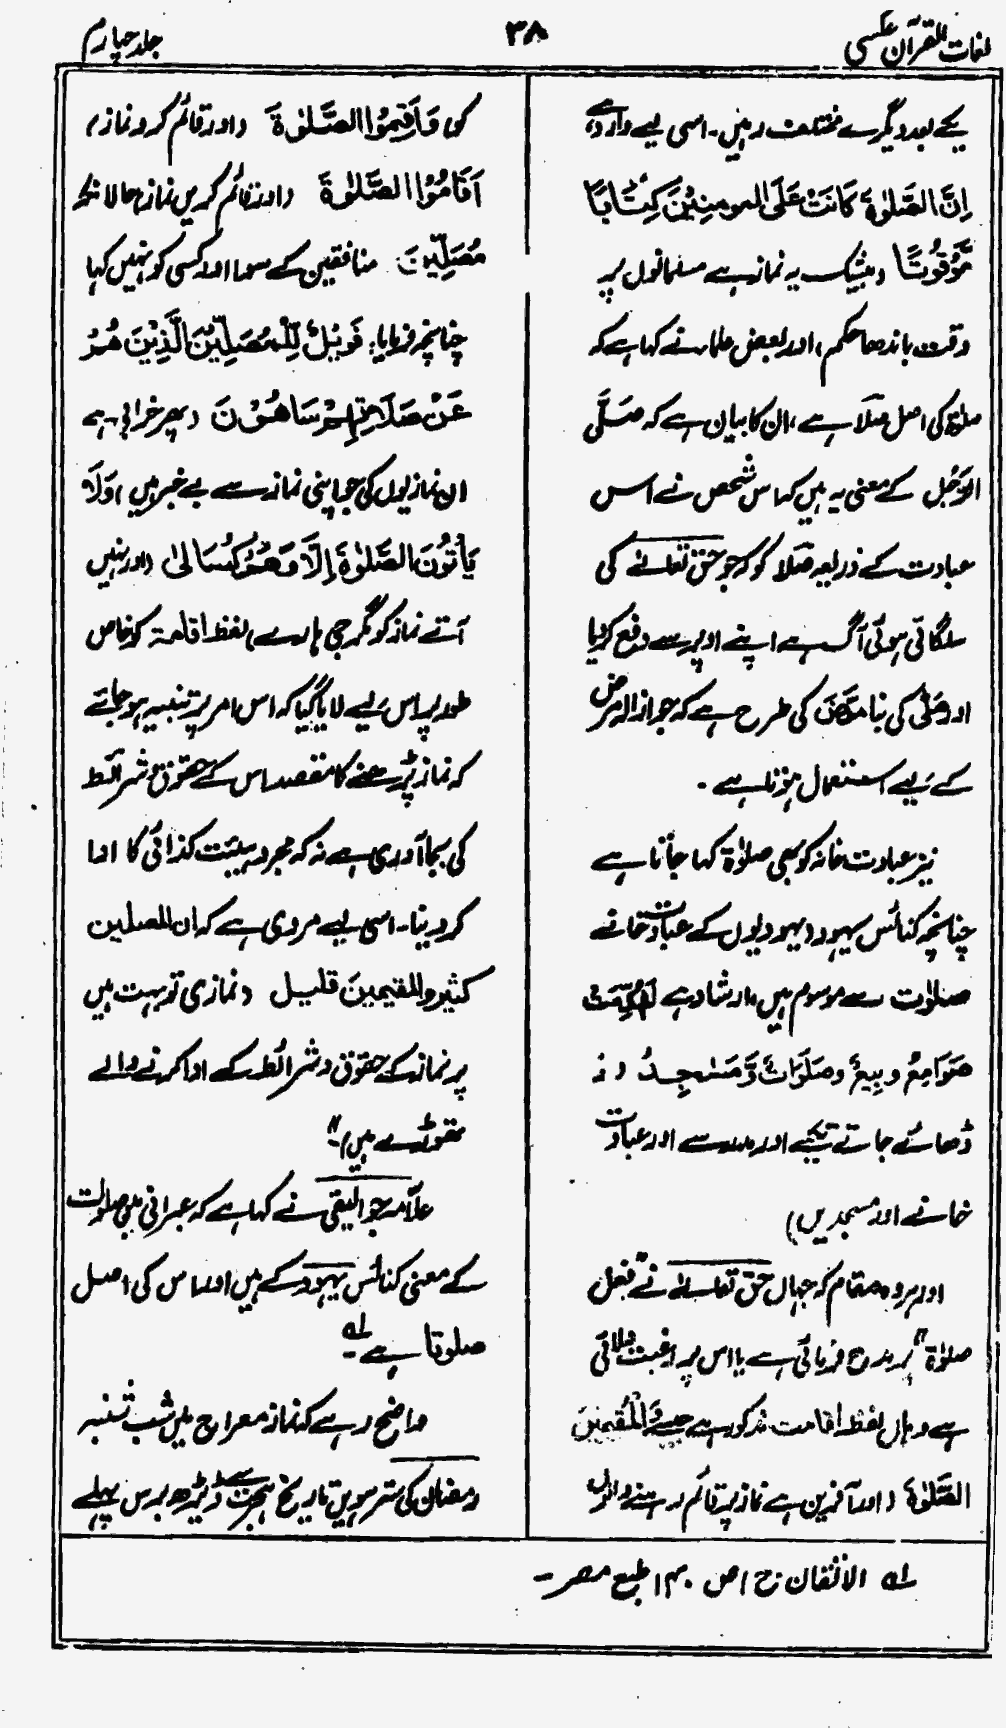 لغات القرآن عکسی
۳۸
جلد چہارم
یکے بعد دیگرے مختلف رہیں۔ اسی لیے وارد ہے
اِنَّ الصَّلٰوۃَ کَانَتْ عَلَی المومنِیْنَ کِتَابًا
مَّوْقُوْتًا (بیشک یہ نماز ہے مسلمانوں پر
وقت باندھا حکم) اور بعض علماء نے کہا ہے کہ
صلوٰۃ کی اصل صَلَاءٌ ہے، ان کا بیان ہے کہ صَلَّی
الرَّجُلُ کے معنی یہ ہیں کہ اس شخص نے اس
عبادت کے ذریعہ صَلَا کو کہ جو حق تعالٰے کی
سلگائی ہوئی آگ ہے اپنے اوپر سے دفع کردیا
اور صَلّٰی کی بنا مَرَّضَ کی طرح ہے کہ جو ازالہ مرض
کے لیے استعمال ہوتا ہے۔
نیز عبادت خانہ کو بھی صلوٰۃ کہا جاتا ہے
چنانچہ کنائس یہود (یہودیوں کے عبادت خانے
صلوٰت سے موسوم ہیں، ارشاد ہے لَهُدِّمَتْ
صَوَامِعُ وَبِیَعٌ وَصَلَوَاتٌ وَّمَسٰجِدُ (تو
ڈھائے جاتے تکیے اور مدرسے اور عبادت
خانے اور مسجدیں)
اور ہر وہ مقام کہ جہاں حق تعالےٰ نے "فعل
صلوٰۃ" پر مدح فرمائی ہے یا اس پر رغبت دلائی
ہے وہاں لفظ اقامت مذکور ہے جیسے وَالْمُقِیْمِیْنَ
الصَّلٰوۃَ (اور آفرین ہے نماز پر قائم رہنے والوں
کو) وَاَقِیْمُوا الصَّلٰوۃَ (اور قائم کرو نماز)
اَقَامُوْا الصَّلٰوۃَ (اور قائم کریں نماز) حالانکہ
مُصَلِّیْنَ منافقین کے سوا اور کسی کو نہیں کہا
چنانچہ فرمایا: فَوَیْلٌ لِّلْمُصَلِّیْنَ الَّذِیْنَ هُمْ
عَنْ صَلَاتِهِمْ سَاهُوْنَ (پھر خرابی ہے
ان نمازیوں کی جو اپنی نماز سے بے خبر ہیں) اوروَلَا
یَاْتُوْنَ الصَّلٰوۃَ اِلَّا وَهُمْ کُسَالٰی (اور نہیں
آتے نماز کو مگر جی ہارے) لفظ اقامۃ کو خاص
طور پر اس لیے لایا گیا کہ اس امر پر تنبیہ ہو جائے
کہ نماز پڑھنے کا مقصد اس کے حقوق و شرائط
کی بجا آوری ہے نہ کہ مجرد ہیئت کذائی کا ادا
کر دینا۔ اسی لیے مروی ہے کہ ان المصلین
کثیر والمقیمین قلیل (نمازی تو بہت ہیں
پر نماز کے حقوق و شرائط کے ادا کرنے والے
تھوڑے ہیں)"۔
علّامہ جوالیقی نے کہا ہے کہ عبرانی میں صلوات
کے معنی کنائس یہود کے ہیں اور اس کی اصل
صلوتا ہے۔ ؎۱
واضح رہے کہ نماز معراج میں شب شنبہ
رمضان کی سترھویں تاریخ ہجرت سے ڈیڑھ برس پہلے
؎۱ الاتقان ج ۱ ص ۱۴۰ طبع مصر۔